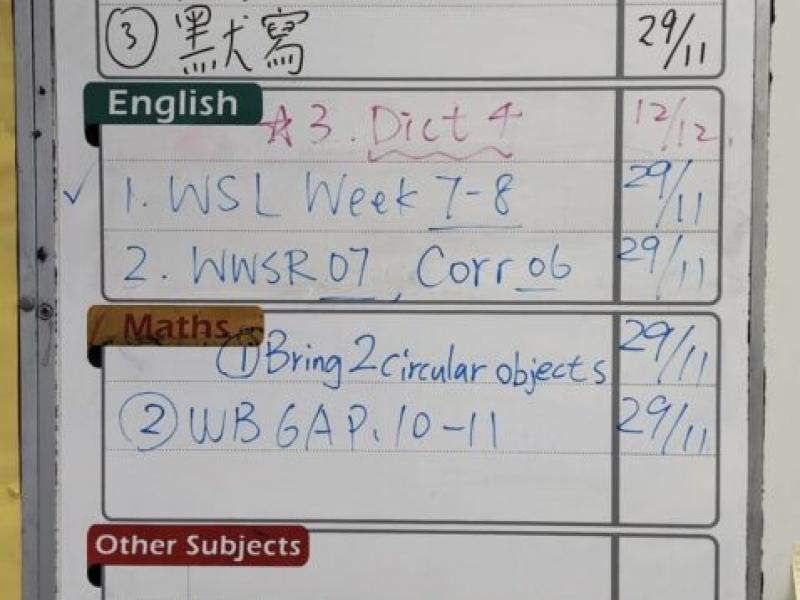 ③ 默寫 29/11
English
☆ 3. Dict 4 12/12
✓ 1. WSL Week 7-8 29/11
2. WWSR 07, Corr 06 29/11
Maths
① Bring 2 circular objects 29/11
② WB 6A P. 10-11 29/11
Other Subjects